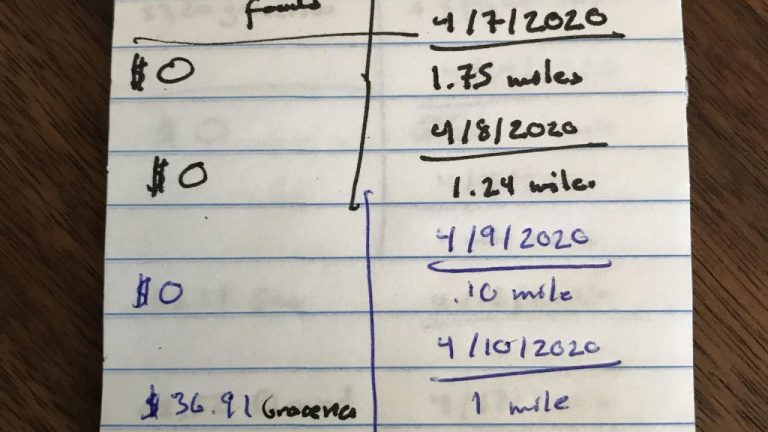 4/7/2020
$0 1.75 miles
4/8/2020
$0 1.24 miles
4/9/2020
$0 .10 mile
4/10/2020
$36.91 Groceries 1 mile